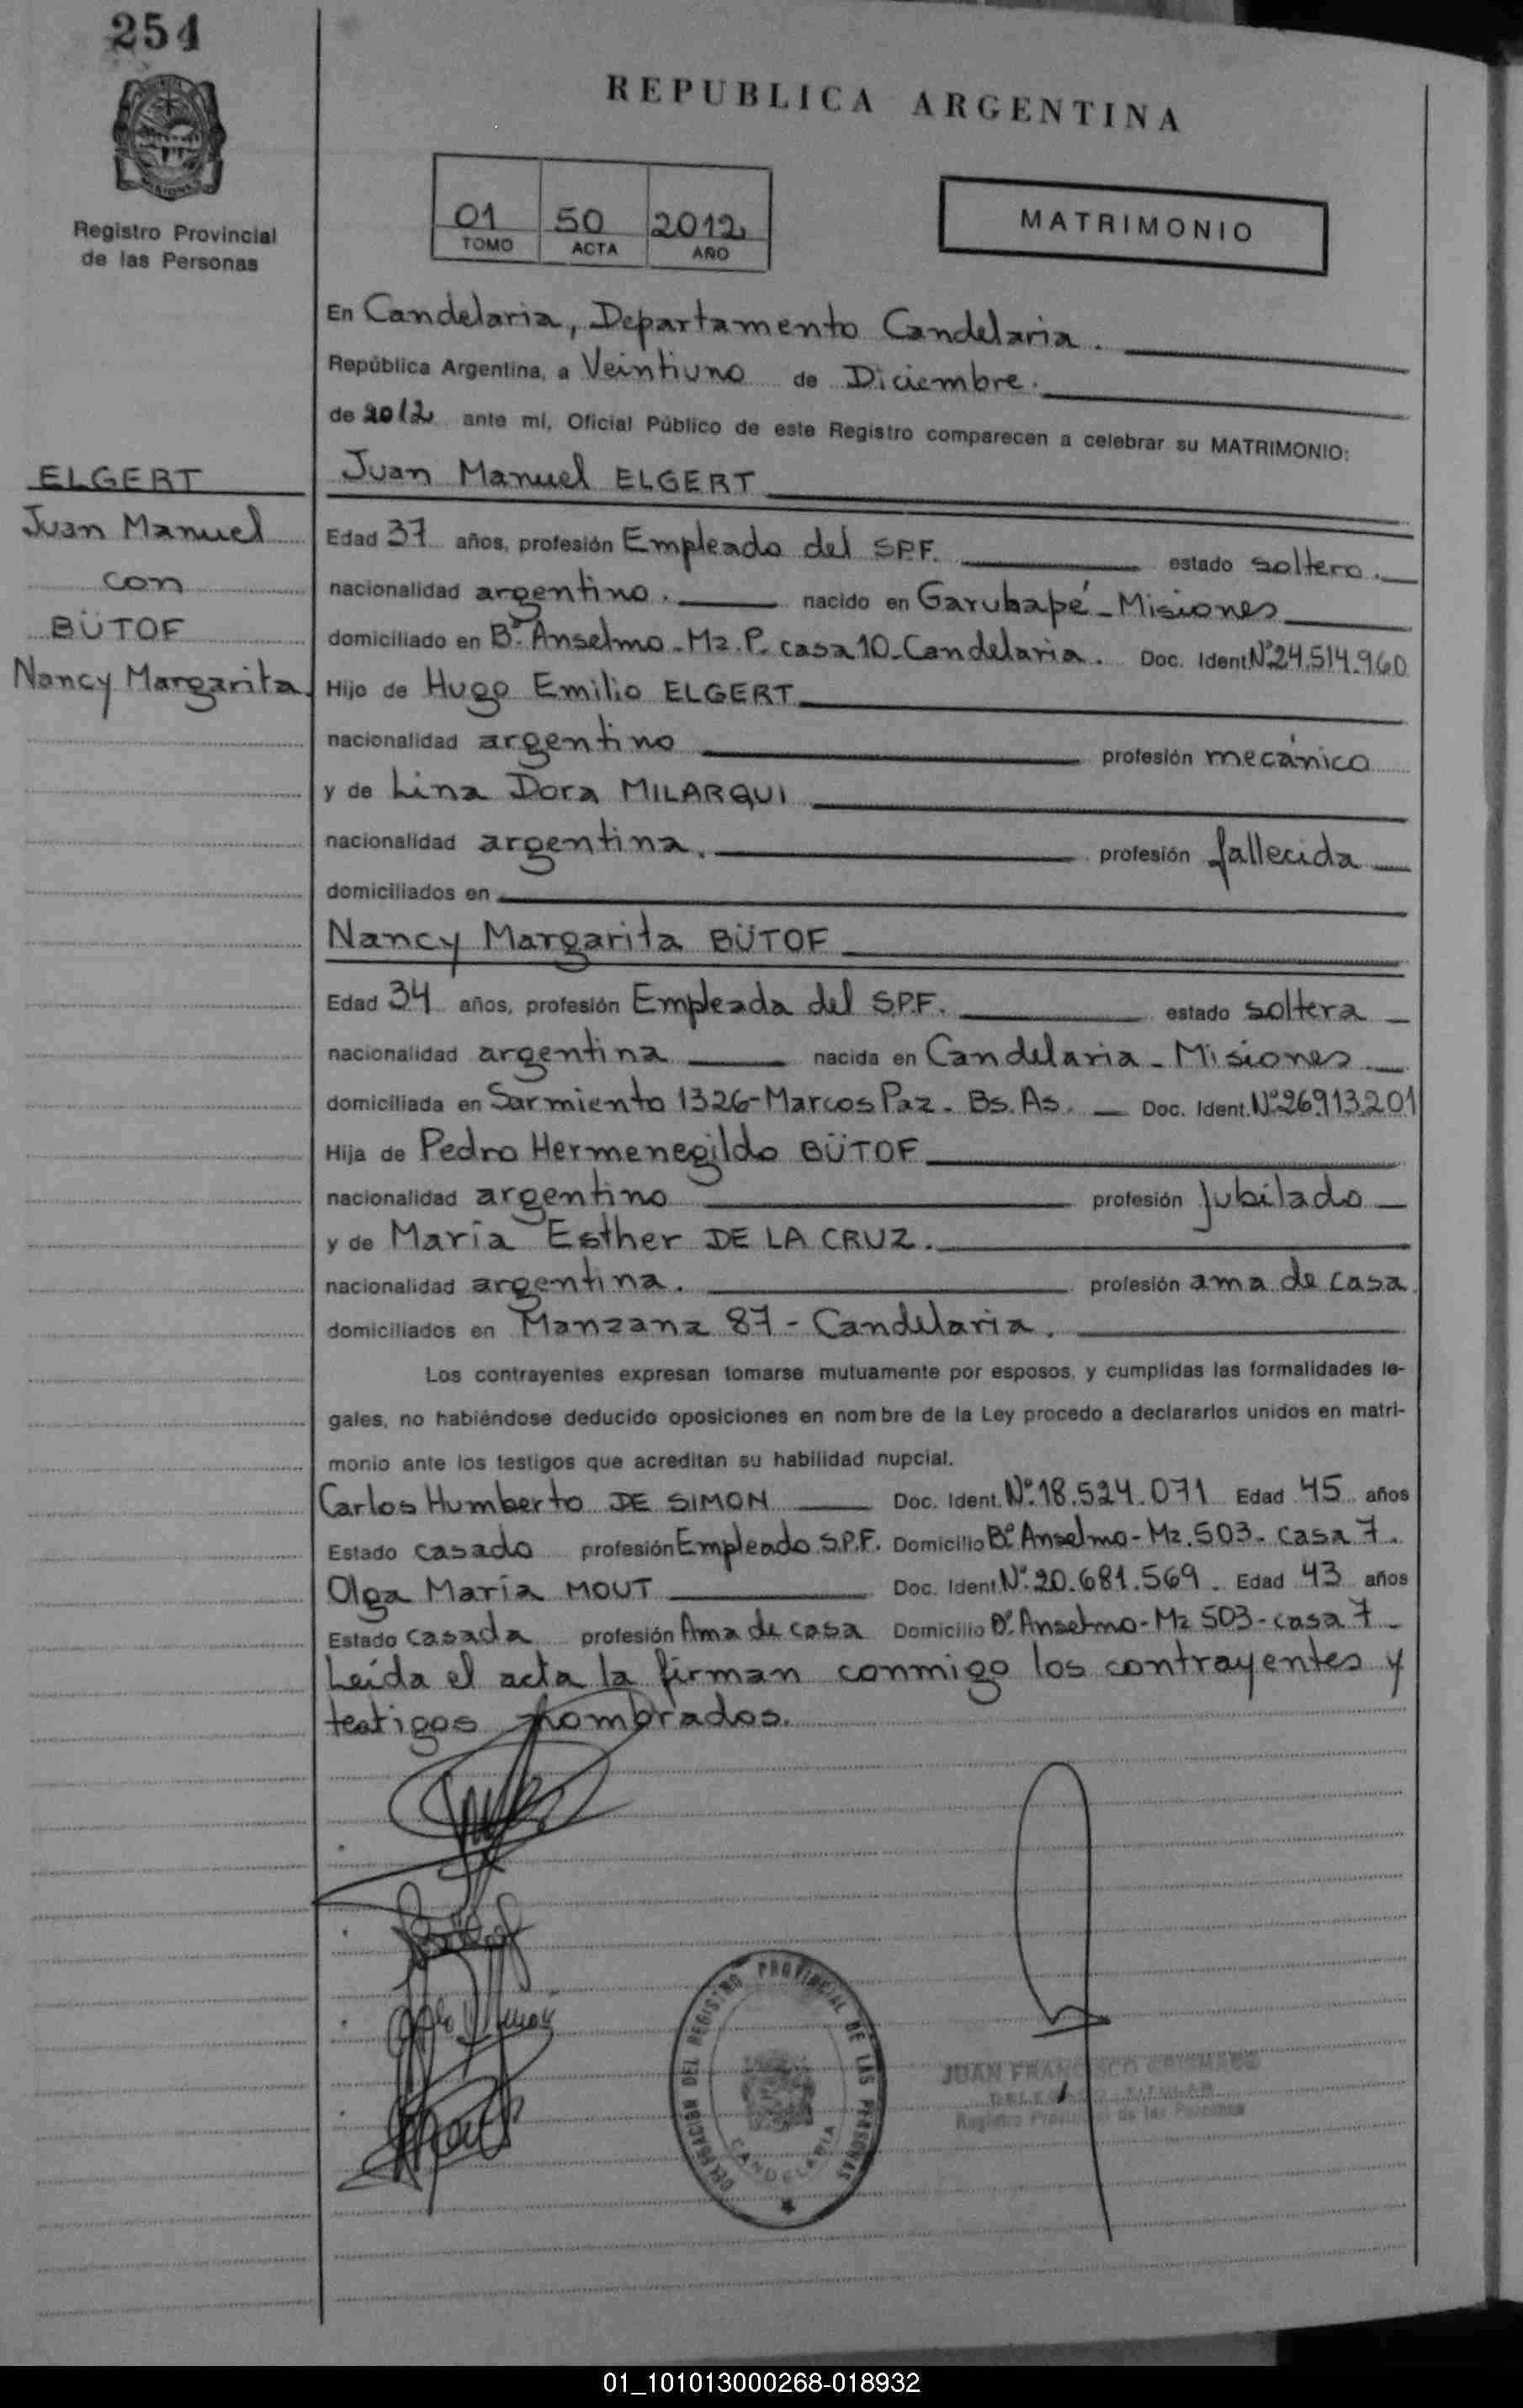 254
REPUBLICA ARGENTINA
MISIONES
Registro Provincial
de las Personas
01 50 2012
TOMO ACTA AÑO
MATRIMONIO
En Candelaria, Departamento Candelaria.
República Argentina, a Veintiuno de Diciembre.
de 2012 ante mí, Oficial Público de este Registro comparecen a celebrar su MATRIMONIO:
ELGERT
Juan Manuel
con
BÜTOF
Nancy Margarita
Juan Manuel ELGERT
Edad 37 años, profesión Empleado del S.P.F. estado soltero.
nacionalidad argentino. nacido en Garuhapé - Misiones
domiciliado en Bº Anselmo - Mz. P. casa 10 - Candelaria. Doc. Ident. Nº 24.514.960
Hijo de Hugo Emilio ELGERT
nacionalidad argentino profesión mecánico
y de Lina Dora MILARQUI
nacionalidad argentina. profesión fallecida
domiciliados en
Nancy Margarita BÜTOF
Edad 34 años, profesión Empleada del S.P.F. estado soltera
nacionalidad argentina nacida en Candelaria - Misiones
domiciliada en Sarmiento 1326 - Marcos Paz - Bs. As. Doc. Ident. Nº 26.913.201
Hija de Pedro Hermenegildo BÜTOF
nacionalidad argentino profesión Jubilado
y de María Esther DE LA CRUZ.
nacionalidad argentina. profesión ama de casa.
domiciliados en Manzana 87 - Candelaria.
Los contrayentes expresan tomarse mutuamente por esposos, y cumplidas las formalidades le-
gales, no habiéndose deducido oposiciones en nombre de la Ley procedo a declararlos unidos en matri-
monio ante los testigos que acreditan su habilidad nupcial.
Carlos Humberto DE SIMON Doc. Ident. Nº 18.524.071 Edad 45 años
Estado casado profesión Empleado S.P.F. Domicilio Bº Anselmo - Mz. 503 - casa 7.
Olga María MOUT Doc. Ident. Nº 20.681.569. Edad 43 años
Estado casada profesión Ama de casa Domicilio Bº Anselmo - Mz 503 - casa 7
Leída el acta la firman conmigo los contrayentes y
testigos nombrados.
DELEGACION DEL REGISTRO PROVINCIAL DE LAS PERSONAS
CANDELARIA
JUAN FRANCISCO
DELEGADO TITULAR
Registro Provincial de las Personas
01_101013000268-018932